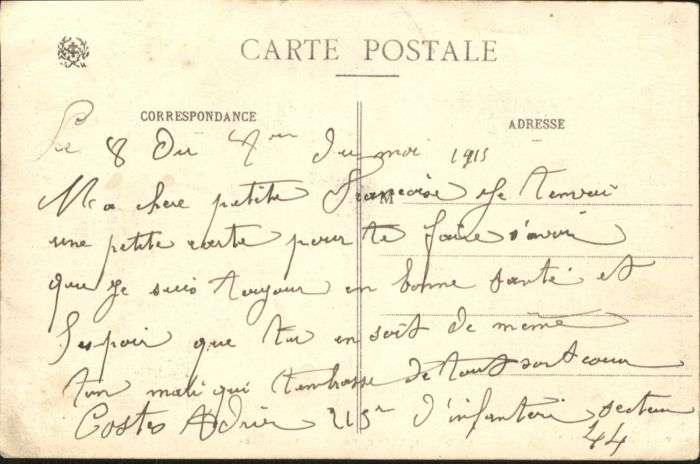 CARTE POSTALE
CORRESPONDANCE
ADRESSE
M
Le 8 Du du moi 1915
Ma chere petite Françoise Je tenvoi
une petite carte pour te faire savoir
que je suis toujour en bonne santé et
Jespoir que tu en soit de même
ton mari qui tembrasse de tout sont coeur
Costes Adrien 215e d'infanteri secteur
44